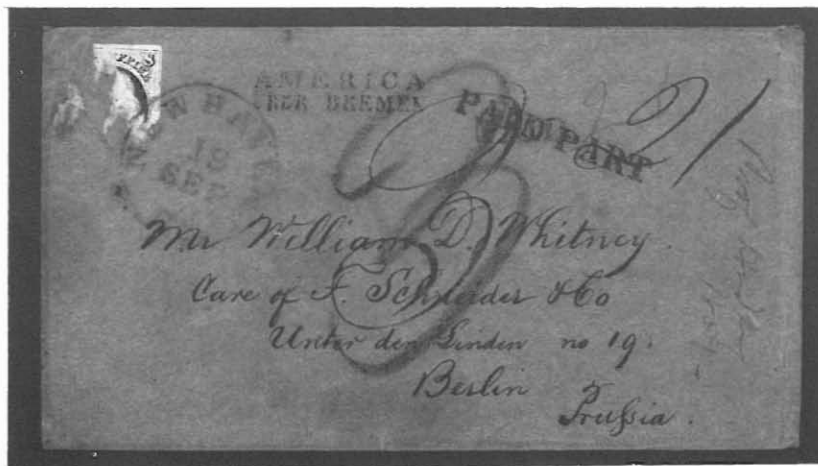 AMERICA
ÜBER BREMEN
PAID PART
21
NEW HAVEN
19
SEP
3
Mr William D. Whitney.
Care of F. Schneider & Co
Unter den Linden no 19.
Berlin
Prußia.